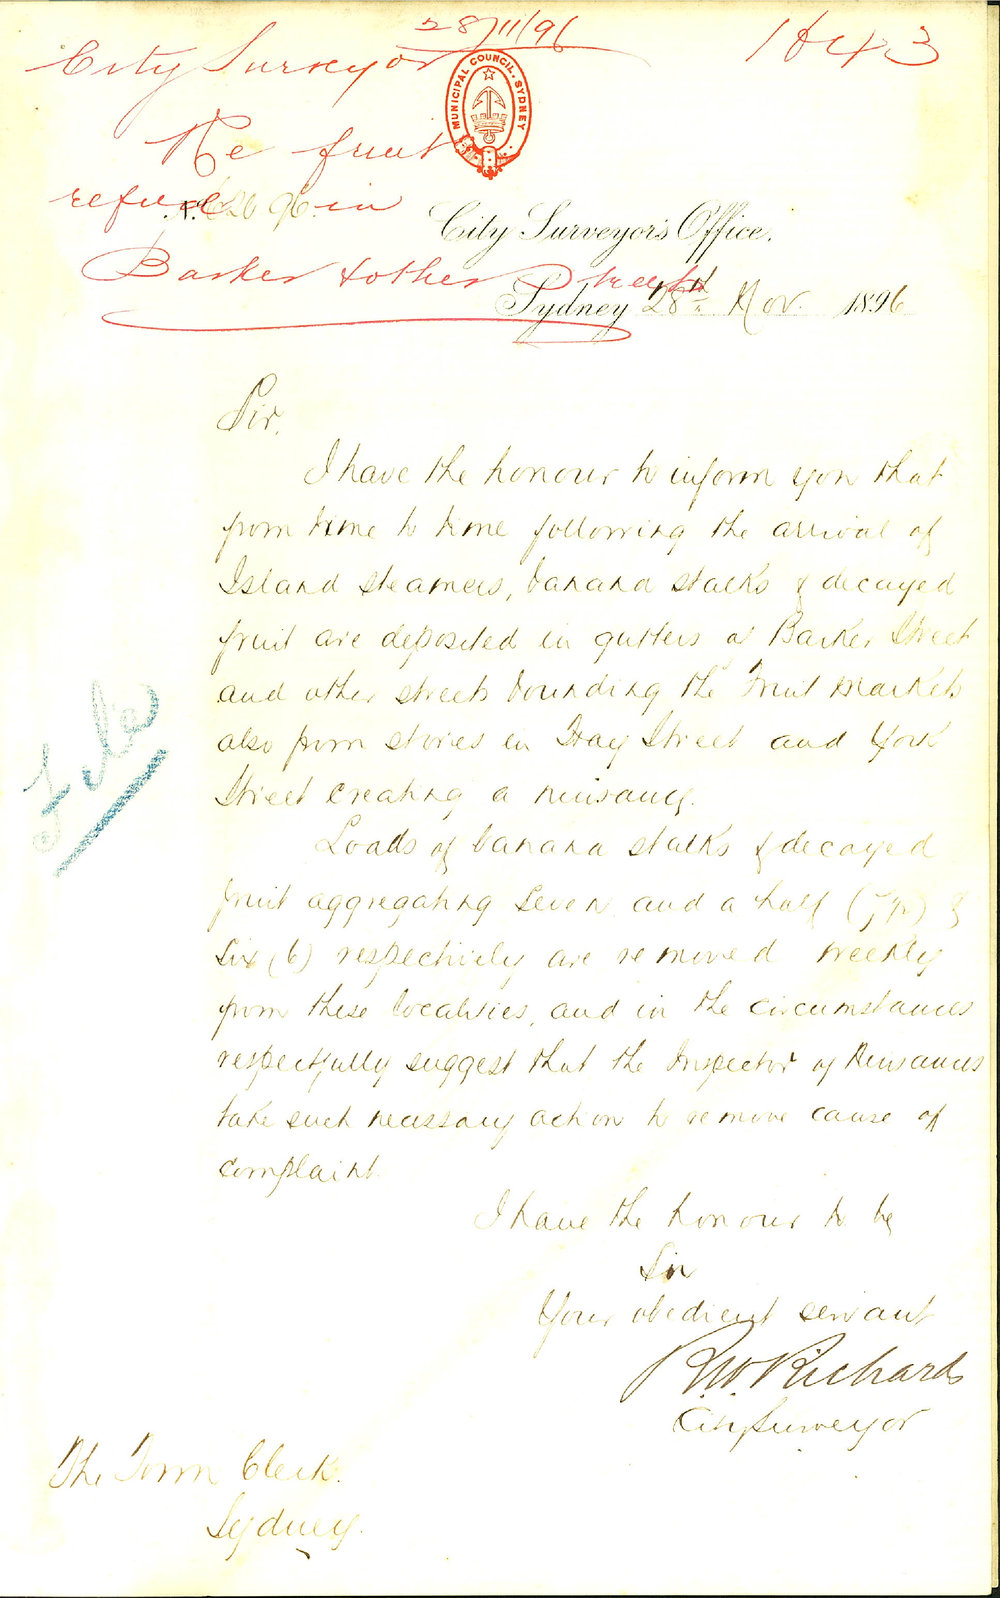 28/11/96
1843
City Surveyor
MUNICIPAL COUNCIL. SYDNEY
Re fruit
refuse in
96.
City Surveyor's Office,
Barker & other Streets
Sydney 28th Nov. 1896
Sir,
I have the honour to inform you that
from time to time following the arrival of
Island steamers, banana stalks & decayed
fruit are deposited in gutters of Barker Street
and other streets bounding the Fruit Markets
also from stores in Hay Street and York
Street creating a nuisance.
Loads of banana stalks & decayed
fruit aggregating seven and a half (7½) &
six (6) respectively are removed weekly
from these localities, and in the circumstances
respectfully suggest that the Inspector of Nuisances
take such necessary action to remove cause of
complaint.
I have the honour to be
Sir
Your obedient servant
R.W. Richards
City Surveyor
File
The Town Clerk.
Sydney.